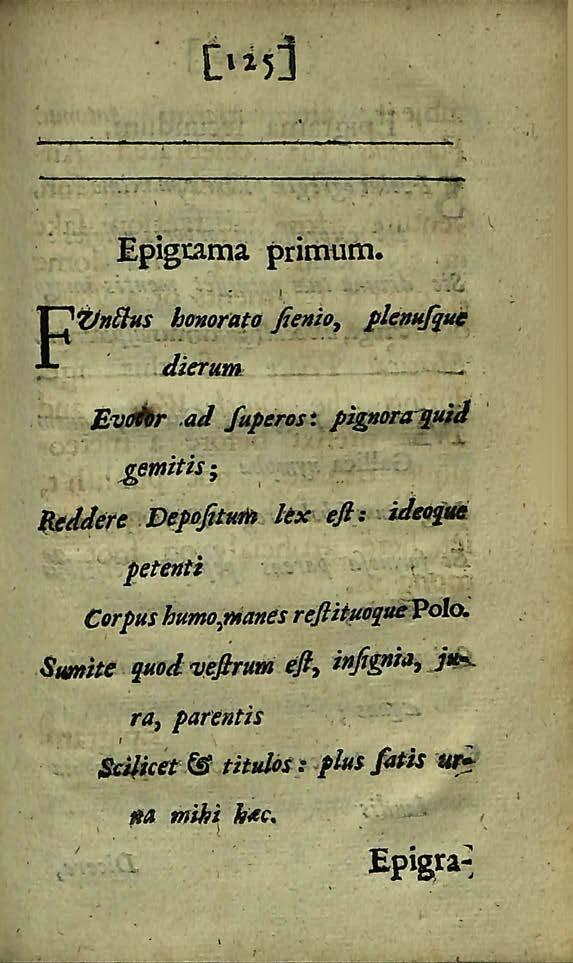 [125]
Epigrama primum.
FUnctus honorato ſienio, plenuſque
dierum
Evotor ad ſuperos: pignora quid
gemitis;
Reddere Depoſitum lex eſt: ideoque
petenti
Corpus humo, manes reſtituoque Polo.
Sumite quod veſtrum eſt, inſignia, ju-
ra, parentis
Scilicet & titulos: plus ſatis ur-
na mihi hæc.
Epigra-